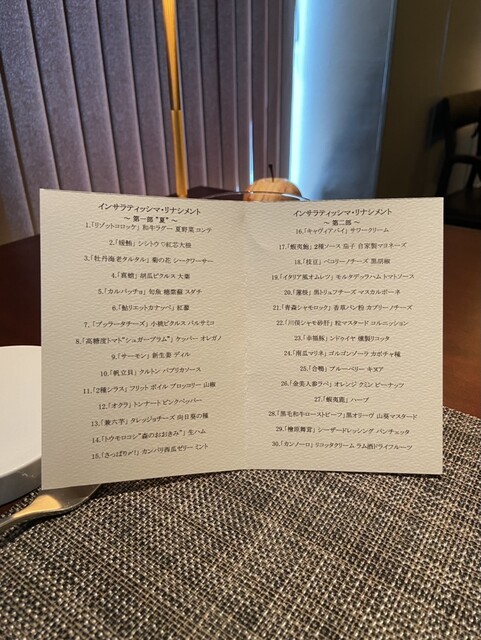 インサラティッシマ・リナシメント
～ 第一部 "夏" ～
1.「リゾットコロッケ」和牛ラグー 夏野菜 コンサ
2.「縞鯵」シシトウ ♡紅芯大根
3.「牡丹海老タルタル」菊の花 シークワーサー
4.「真蛸」胡瓜ピクルス 大葉
5.「カルパッチョ」旬魚 穂紫蘇 スダチ
6.「鮎リエットカナッペ」紅蓼
7.「ブッラータチーズ」小桃ピクルス バルサミコ
8.「高糖度トマト"シュガープラム"」ケッパー オレガノ
9.「サーモン」新生姜 ディル
10.「帆立貝」クルトン パプリカソース
11.「2種シラス」フリット ボイル ブロッコリー 山椒
12.「オクラ」トンナート ピンクペッパー
13.「兼六芋」タレッジョチーズ 向日葵の種
14.「トウモロコシ"森のおおきみ"」生ハム
15.「さっぱり〆!」カンパリ西瓜ゼリー ミント
インサラティッシマ・リナシメント
～ 第二部 ～
16.「キャヴィアパイ」サワークリーム
17.「蝦夷鮑」2種ソース 茄子 自家製マヨネーズ
18.「枝豆」ペコリーノチーズ 黒胡椒
19.「イタリア風オムレツ」モルタデッラハム トマトソース
20.「蓮根」黒トリュフチーズ マスカルポーネ
21.「青森シャモロック」香草パン粉 カプリーノチーズ
22.「川俣シャモ砂肝」粒マスタード コルニッション
23.「幸福豚」ンドゥイヤ 燻製リコッタ
24.「南瓜マリネ」ゴルゴンゾーラ カボチャ種
25.「合鴨」ブルーベリー キヌア
26.「金美人参ラペ」オレンジ クミン ピーナッツ
27.「蝦夷鹿」ハーブ
28.「黒毛和牛ローストビーフ」黒オリーヴ 山葵マスタード
29.「檜原舞茸」シーザードレッシング パンチェッタ
30.「カンノーロ」リコッタクリーム ラム酒ドライフルーツ